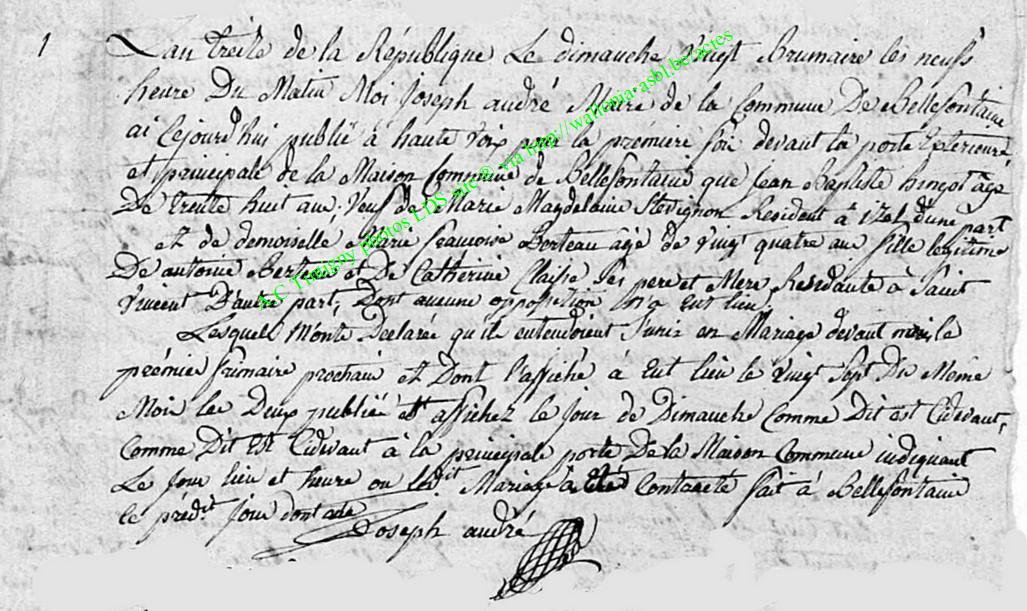 1 Lan treize de la République Le dimanche vingt Brumaire les neufs
heure Du Matin Moi Joseph andré Maire de la Commune De Bellefontaine
ai Cejourd'hui publié à haute voix pour la premiere foi devant la porte Exterieure
et principale de la Maison Commune de Bellefontaine que Jean Baptiste agé
De trente huit ans, Veuf de Marie Magdelaine Stevignon Resident à izel d'une part
et de demoiselle Marie francoise Berteau agé de vingt quatre ans fille legitime
De antoine Berteau et De Catherine Claisse ses pere et Mere, Residante à Saint
vincent D'autre part, Dont aucune opposition n'a Eut lieu.
Lesquels M'onte Declarée qu'ils entendoient S'unir en Mariage devant moi le
prémier frimaire prochain et Dont l'affiche à Eut lieu le vingt Sept Du Même
Mois les Deux publié et affichez le Jour de Dimanche Comme Dit est Cidevant,
Comme Dit Est Cidevant à la principale porte De la Maison Commune indiquant
Le Jour lieu et heure ou ledit Mariage à été Contracté fait à Bellefontaine
le prédit Jour dont acte
Joseph andré
A.C Thiugny photos LDS site ® via http://wallonia-asbl.be/actes